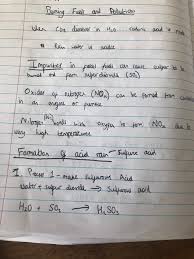 Burning Fuels and Pollution
When CO2 dissolves in H2O carbonic acid is made
* Rain water is acidic
Impurities in fossil fuels can cause sulphur to be
burned and form sulphur dioxide (SO2)
Oxides of nitrogen (NOx) can be formed from combustion
in an engine or furnace
Nitrogen bonds with oxygen to form NOx due to
very high temperatures
Formation of acid rain - Sulfuric acid
1. Process 1 - make Sulphurous Acid
water + sulphur dioxide → Sulphurous acid
H2O + SO2 → H2SO3